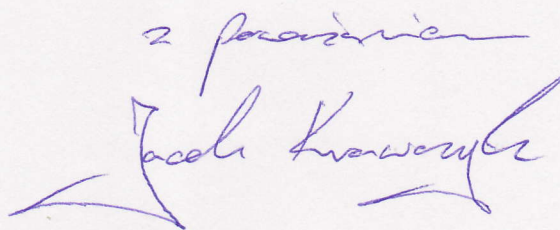 z poważaniem
Jacek Krawczyk